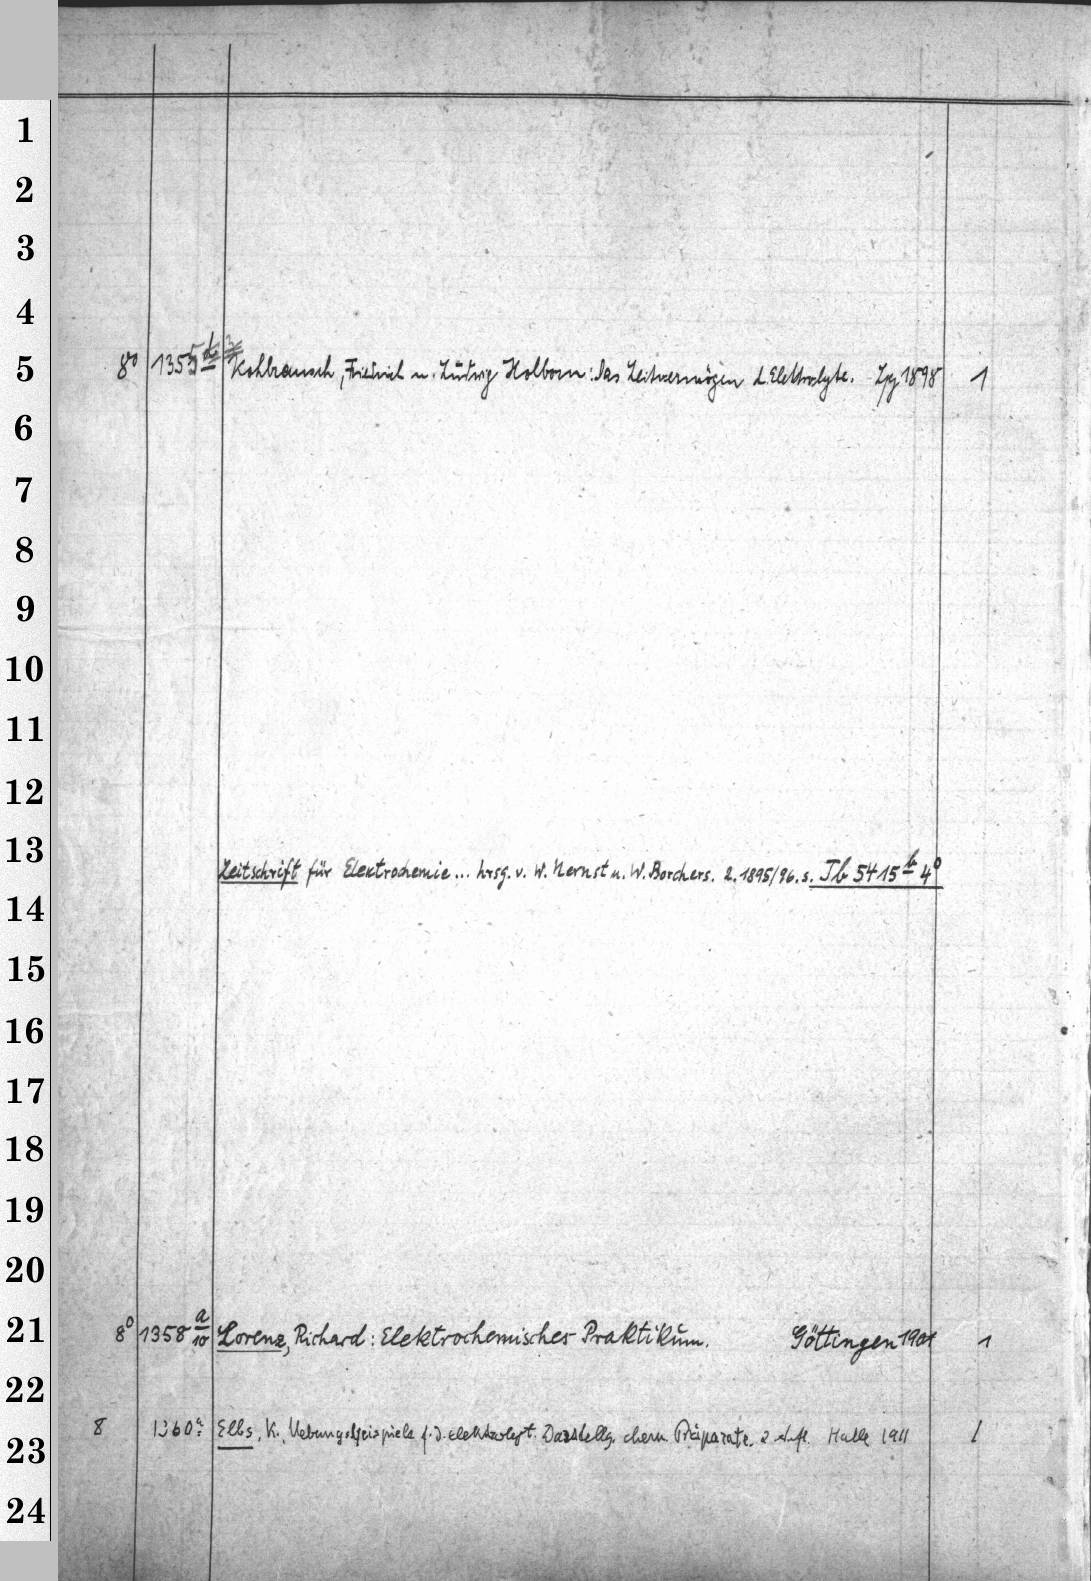 1
2
3
4
5 8º 1355 Kohlrausch, Friedrich u. Ludwig Holborn: Das Leitvermögen d. Elektrolyte. Lpz 1898 1
6
7
8
9
10
11
12
13 Zeitschrift für Elektrochemie... hrsg. v. W. Nernst u. W. Borchers. 2. 1895/96. s. Jb 5415 b 4º
14
15
16
17
18
19
20
21 8º 1358 a/10 Lorenz, Richard: Elektrochemisches Praktikum. Göttingen 1901 1
22
23 8 1360 a Elbs, K., Uebungsbeispiele f. d. elektrolyt. Darstellg. chem. Präparate. 2 Aufl. Halle 1911 1
24